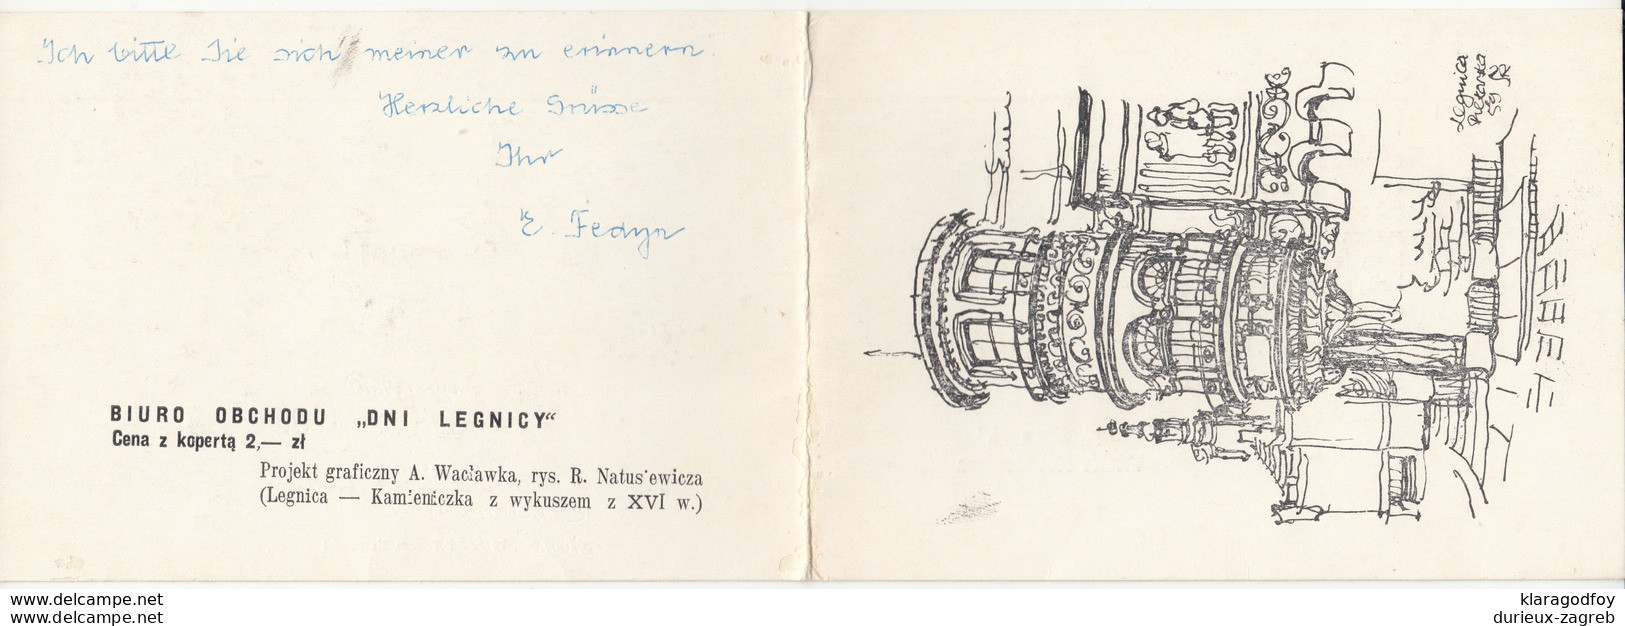 Ich bitte Sie sich meiner zu erinnern.
Herzliche Grüsse
Ihr
E. Fedyn
BIURO OBCHODU „DNI LEGNICY“
Cena z kopertą 2,— zł
Projekt graficzny A. Wacławka, rys. R. Natusiewicza
(Legnica — Kamieniczka z wykuszem z XVI w.)
Legnica
Piekarska
59
www.delcampe.net
www.delcampe.net
klaragodfoy
durieux-zagreb